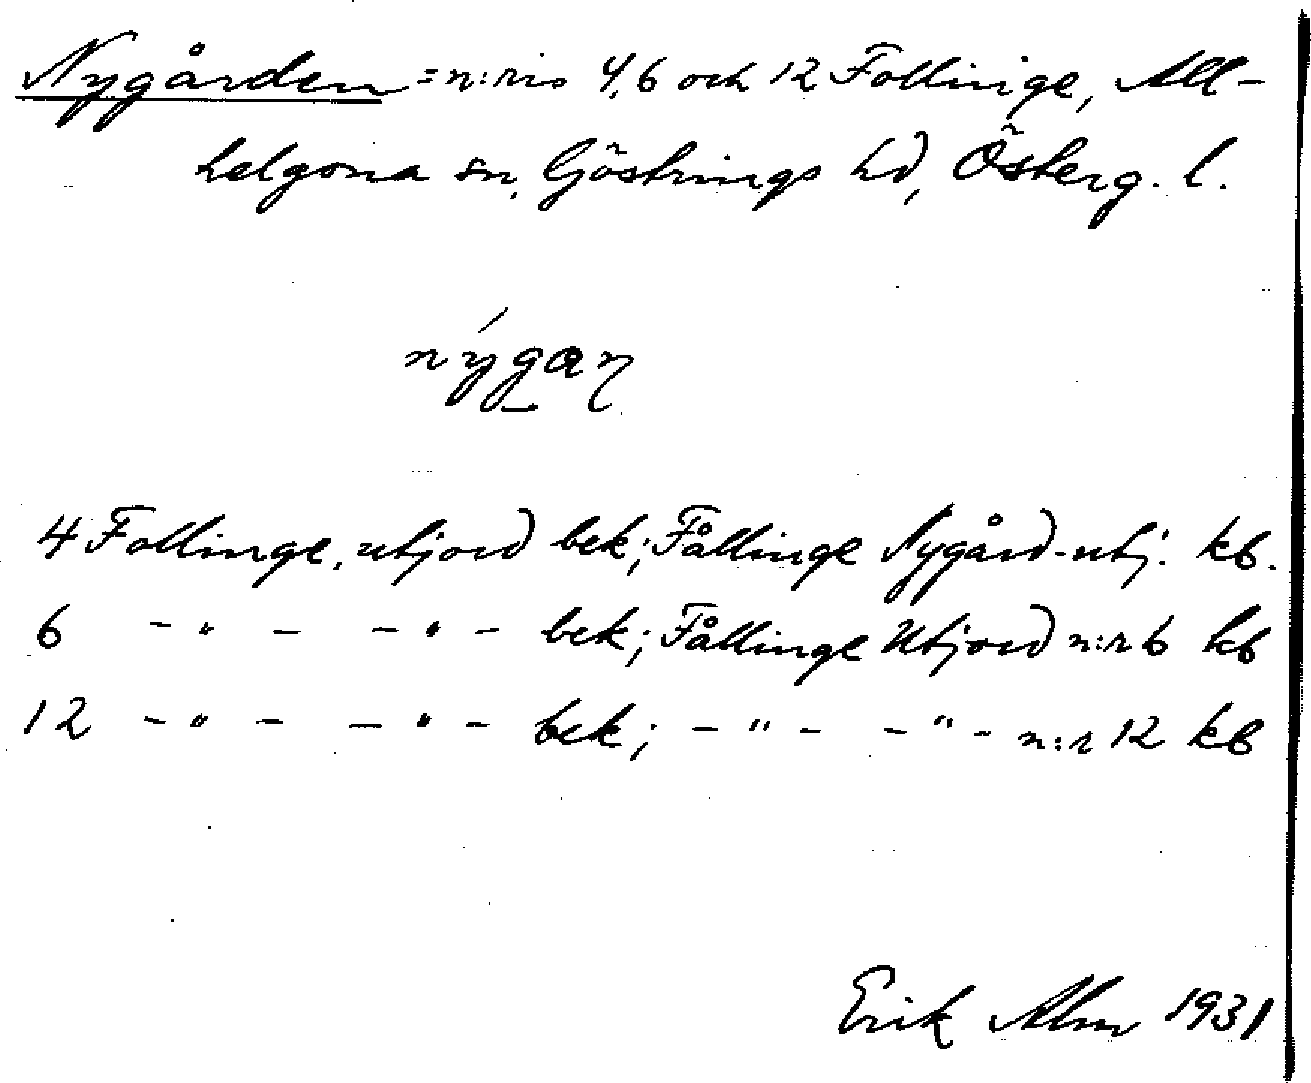 Nygården = n:ris 4, 6 och 12 Follinge, All-
helgona sn, Göstrings hd, Österg. l.
nýgaɳ
4 Follinge, utjord bek; Fållinge Nygård-utj. kb.
6 - " - - " - bek; Fållinge Utjord n:r 6 kb
12 - " - - " - bek; - " - - " - n:r 12 kb
Erik Alm 1931